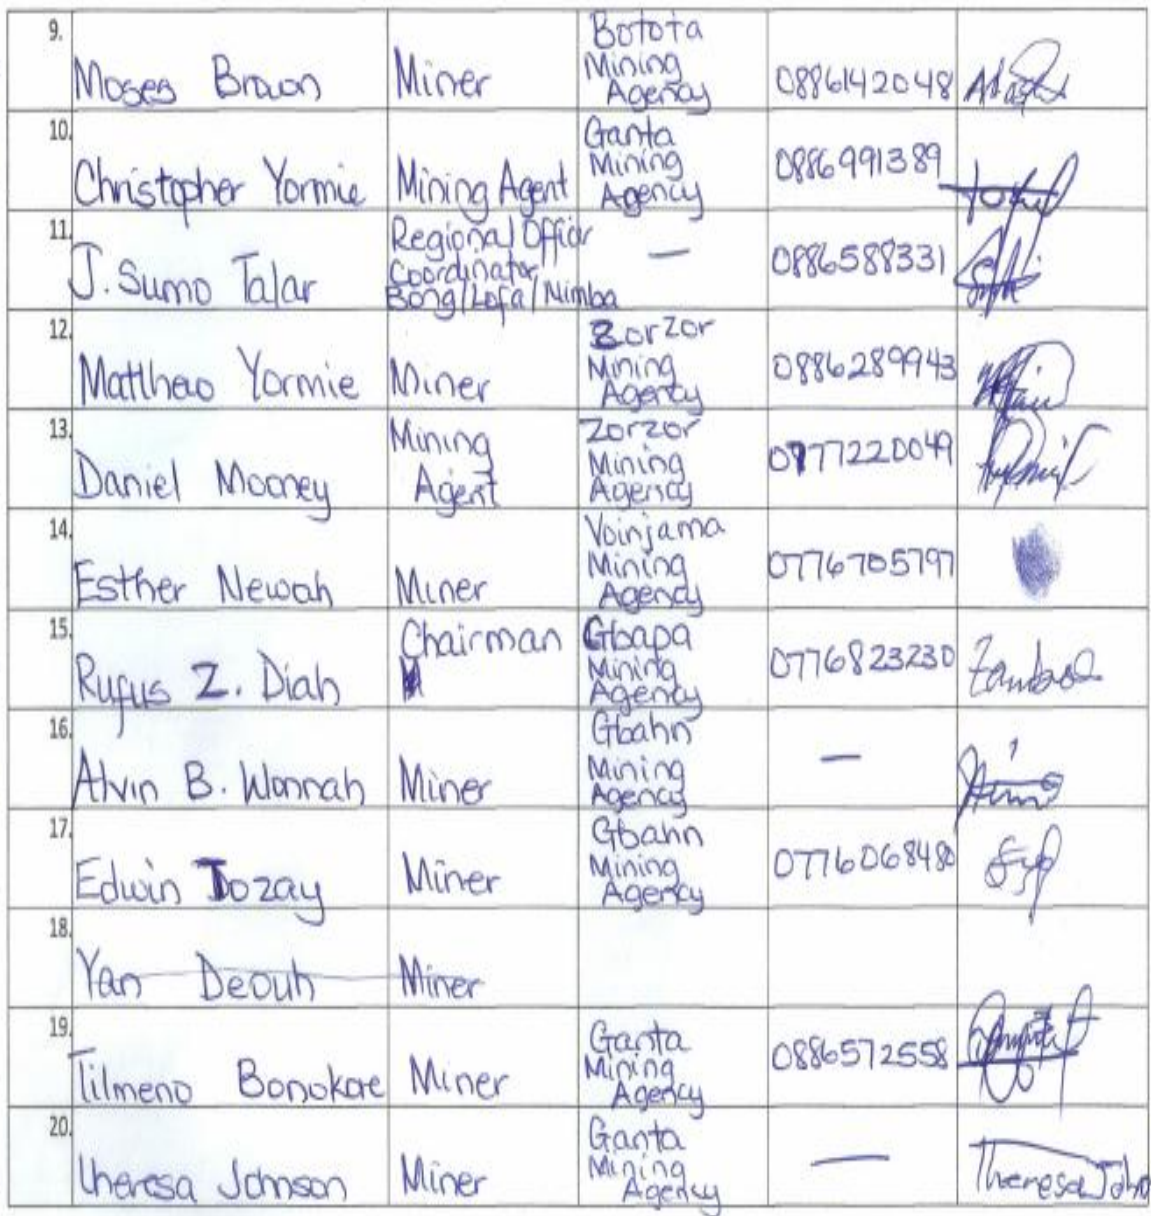 9. Moses Brown Miner Botota Mining Agency 0886142048
10. Christopher Yormie Mining Agent Ganta Mining Agency 0886991389
11. J. Sumo Talar Regional Officer Coordinator Bong/Lofa/Nimba — 0886588331
12. Matthew Yormie Miner Zorzor Mining Agency 0886289943
13. Daniel Mooney Mining Agent Zorzor Mining Agency 0777220049
14. Esther Newah Miner Voinjama Mining Agency 0776705797
15. Rufus Z. Diah Chairman Gbapa Mining Agency 0776823230
16. Alvin B. Wonnah Miner Gbahn Mining Agency —
17. Edwin Tozay Miner Gbahn Mining Agency 0776068480
18. Yan Deouh Miner
19. Tilmeno Bonokore Miner Ganta Mining Agency 0886572558
20. Theresa Johnson Miner Ganta Mining Agency — Theresa John